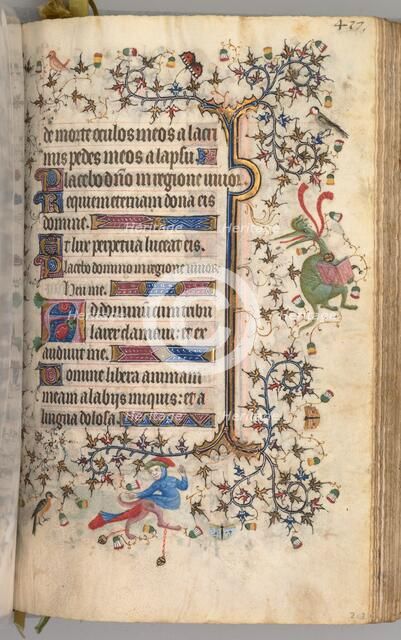 427.
de morte oculos meos a lacri
mis pedes meos a lapsu
Placebo dño in regione vivoꝝ
Requiem eternam dona eis
domine.
Et lux perpetua luceat eis.
Placebo domino in regione vivoꝝ.
Heu me.
Ad dominum cum tribu
larer clamavi: et ex
audivit me.
Domine libera animam
meam a labijs iniquis: et a
lingua dolosa.
Heritage
Heritage
Heritage
Heritage